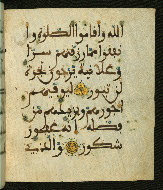 الله وأقاموا الصلوة وا
نفقوا مما رزقنهم سرا
وعلانية يرجون تجرة
لن تبور ليوفيهم
أجورهم ويزيدهم من
فضله إنه غفور
شكور والذي